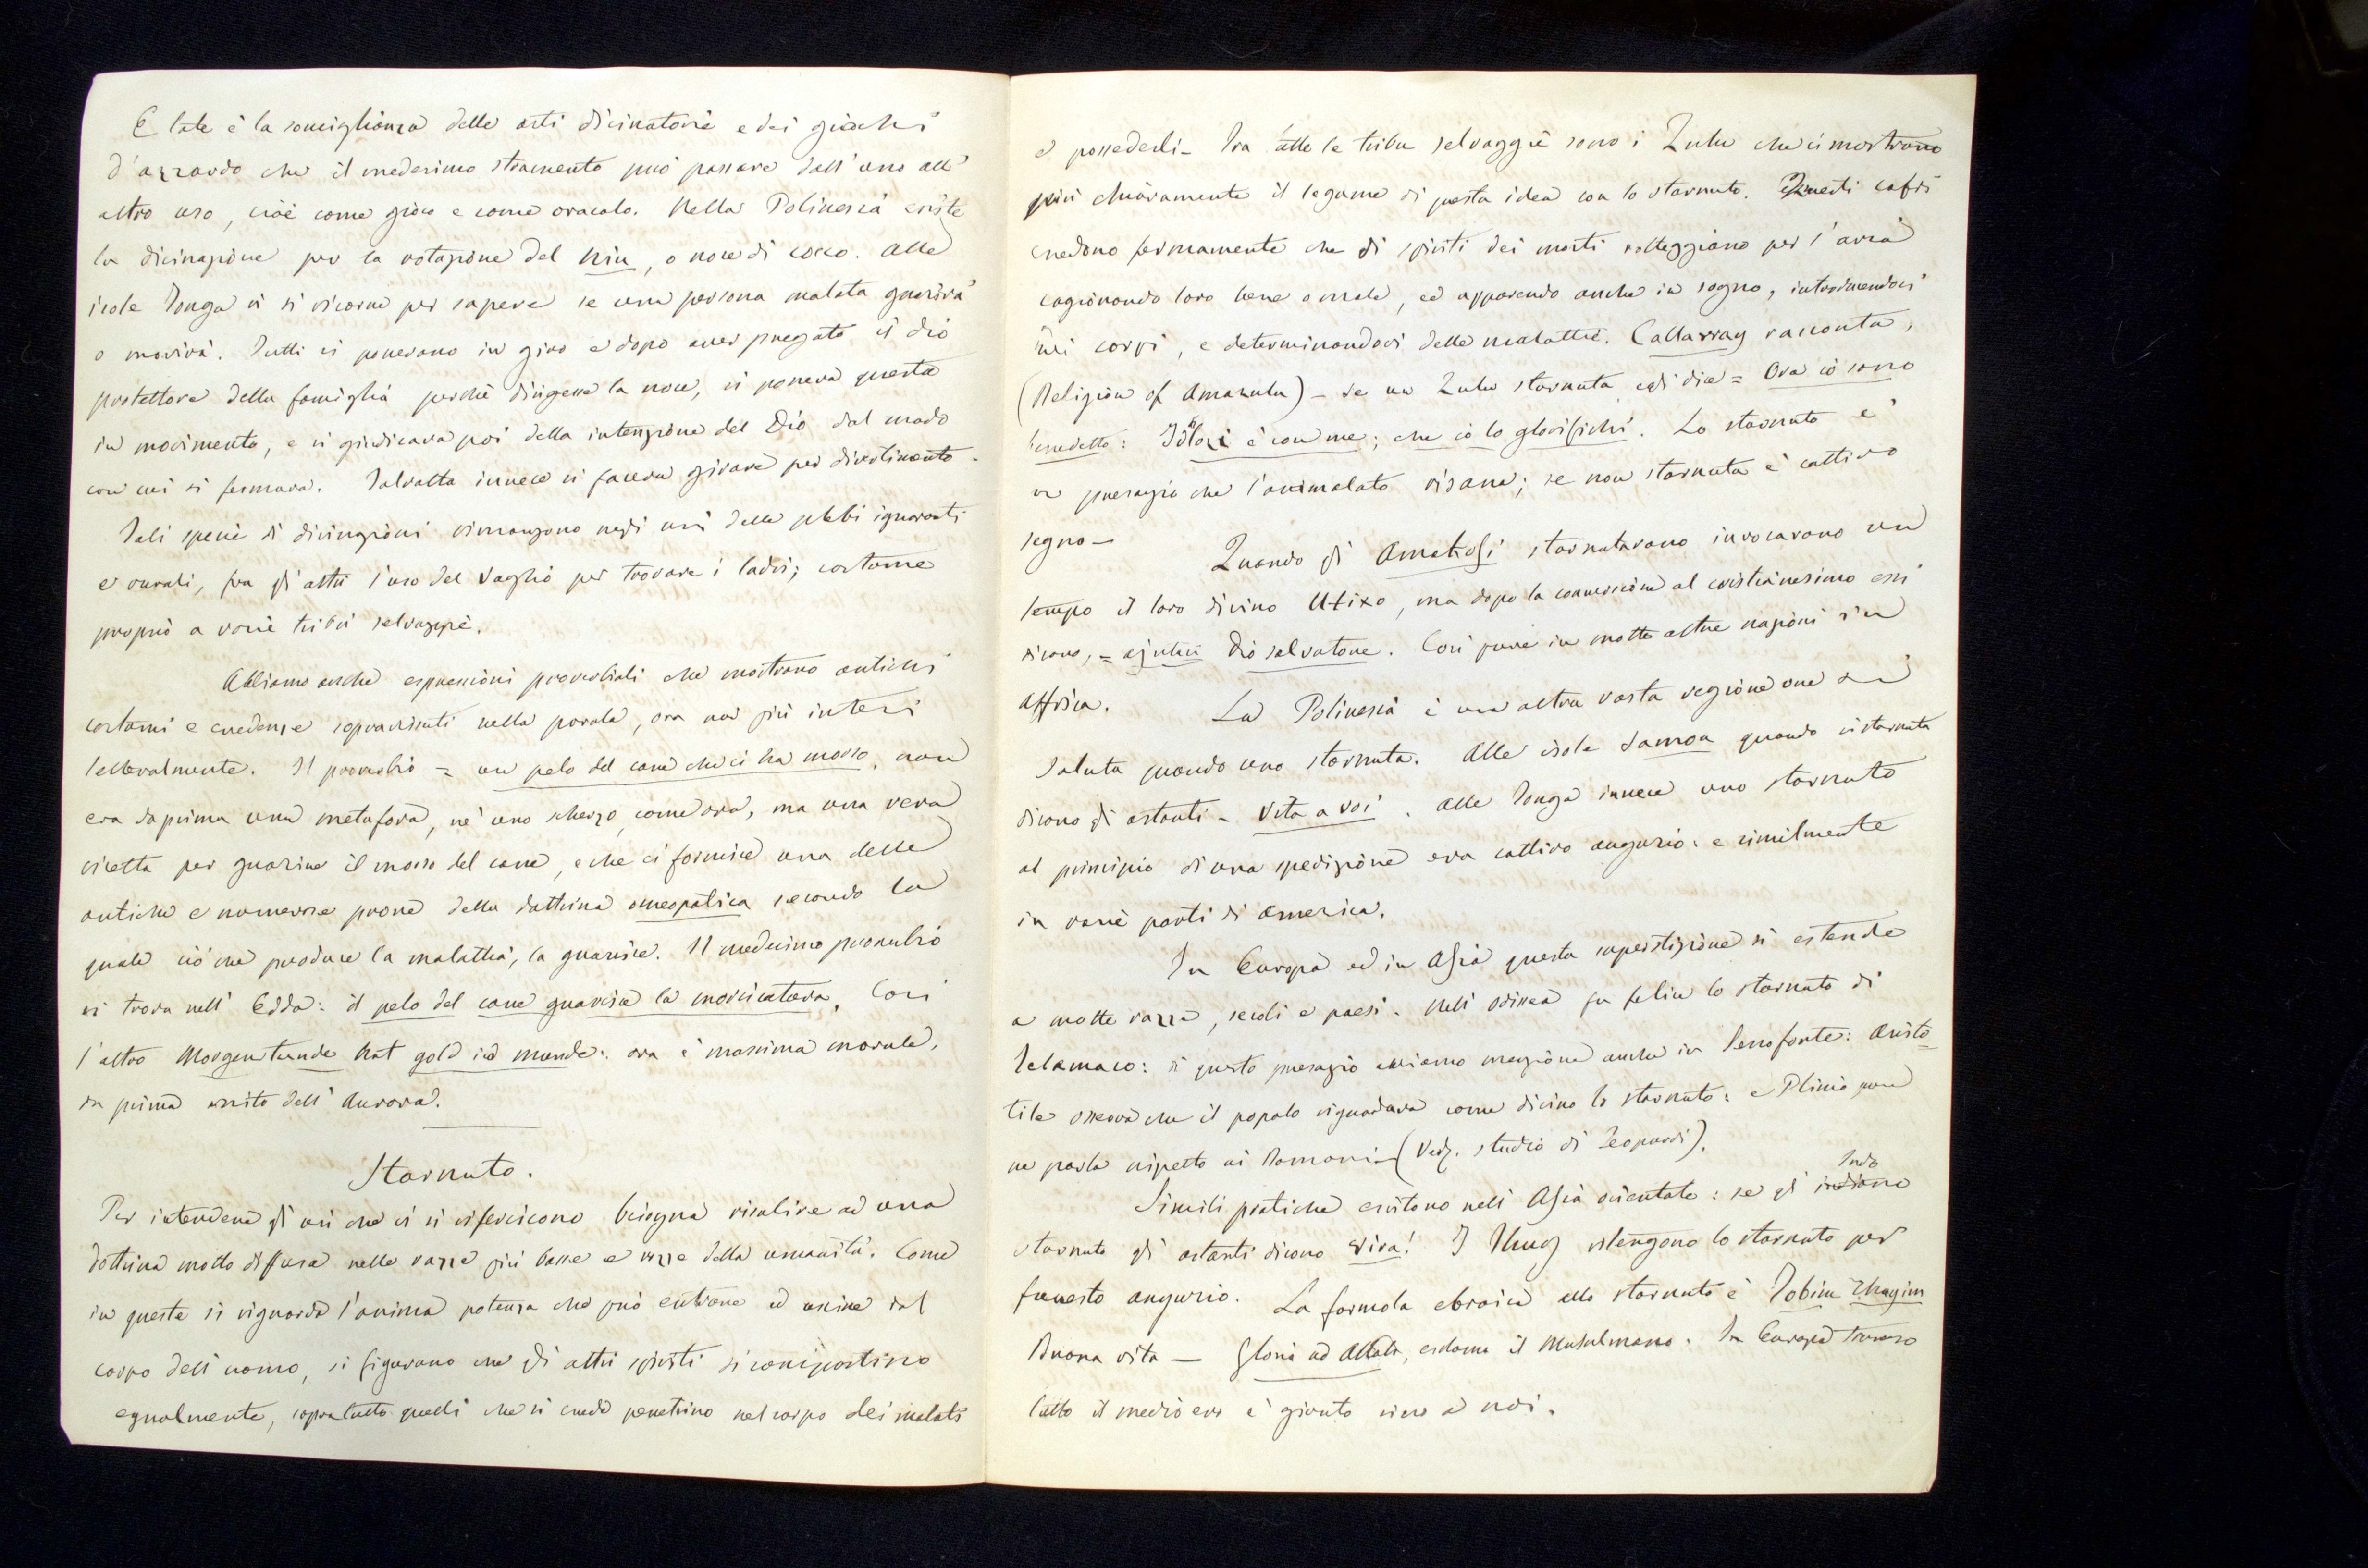 E tale è la somiglianza delle arti divinatorie e dei giuochi
d'azzardo che il medesimo stromento può passare dall'uno all'
altro uso, cioè come gioco e come oracolo. Nella Polinesia esiste
la divinazione per la rotazione del niu, o noce di cocco. Alle
isole Tonga vi si ricorre per sapere se una persona malata guarirà
o morirà. Tutti si ponevano in giro e dopo aver pregato il dio
protettore della famiglia perchè dirigesse la noce, si poneva questa
in movimento, e si giudicava poi della intenzione del Dio dal modo
con cui si fermava. Talvolta invece si faceva girare per divertimento.
Tali specie di divinazioni rimangono negli usi delle plebi ignoranti
e rurali, fra gli altri l'uso del vaglio per trovare i ladri; costume
proprio a varie tribù selvaggie.
Abbiamo anche espressioni proverbiali che mostrano antichi
costumi e credenze sopravissuti nella parola, ora non più intesi
letteralmente. Il proverbio = un pelo del cane che ci ha morso, non
era da prima una metafora, nè uno scherzo, come ora, ma una vera
ricetta per guarire il morso del cane, e che ci fornisce una delle
antiche e numerose prove della dottrina omeopatica secondo la
quale ciò che produce la malattia, la guarisce. Il medesimo proverbio
si trova nell' Edda: il pelo del cane guarisce la morsicatura. Così
l'altro Morgenstunde hat gold in munde: ora è massima morale,
da prima mito dell' Aurora.
Starnuto.
Per intendere gli usi che vi si riferiscono bisogna risalire ad una
dottrina molto diffusa nelle razze più basse e rozze della umanità. Come
in queste si riguarda l'anima potenza che può entrare ed uscire dal
corpo dell'uomo, si figurano che gli altri spiriti si comportino
egualmente, sopratutto quelli che si crede penetrino nel corpo dei malati
e possederli - Tra tutte le tribu selvaggie sono i Zulu che ci mostrano
più chiaramente il legame di questa idea con lo starnuto. Questi cafri
credono fermamente che gli spiriti dei morti volteggiano per l'aria
cagionando loro bene o male, ed apparendo anche in sogno, introducendosi
nei corpi, e determinandovi delle malattie. Callaway racconta,
(Religion of Amazulu) - se un Zulu starnuta egli dice = Ora io sono
benedetto: Idlozi è con me; che io lo glorifichi. Lo starnuto è
un presagio che l'ammalato risana; se non starnuta è cattivo
segno -
Quando gli Amakosi starnutavano invocavano un
tempo il loro divino Utixo, ma dopo la conversione al cristianesimo essi
dicono, = ajutaci Dio salvatore. Così pure in molte altre nazioni in
Affrica.
La Polinesia è una altra vasta regione ove si
saluta quando uno starnuta. Alle isole Samoa quando si starnuta
dicono gli astanti - Vita a voi. Alle Tonga invece uno starnuto
al principio di una spedizione era cattivo augurio: e similmente
in varie parti di America.
In Europa ed in Asia questa superstizione si estende
a molte razze, secoli e paesi. Nell' Odissea fu felice lo starnuto di
Telamaco: di questo presagio abbiamo menzione anche in Senofonte: Aristo-
tile osserva che il popolo riguardava come divino lo starnuto: e Plinio pure
ne parla rispetto ai Romani - (Ved. studio di Leopardi).
Simili pratiche esistono nell' Asia orientale: se gl' indiano Indo
starnuta gli astanti dicono viva! I Thug ritengono lo starnuto per
funesto augurio. La formola ebraica allo starnuto è Tobim Chayim
Buona vita — Gloria ad Allah, esclama il Musulmano. In Europa traverso
tutto il medio evo è giunto sino a noi.